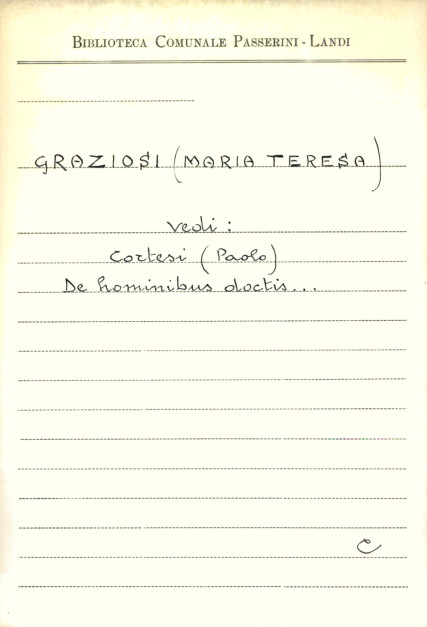 BIBLIOTECA COMUNALE PASSERINI - LANDI
GRAZIOSI (MARIA TERESA)
vedi :
Cortesi (Paolo)
De hominibus doctis...
C